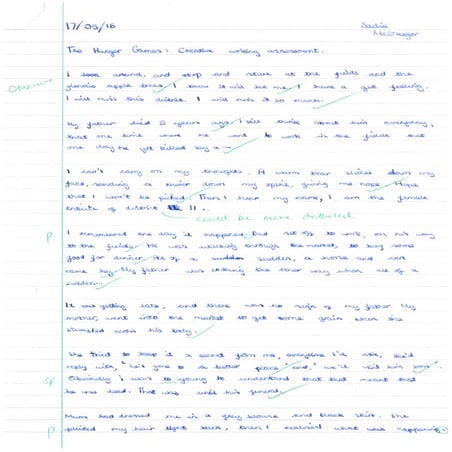 17/05/16
Sadie
McGregor
The Hunger Games: Creative writing assessment.
I look around, and stop and stare at the fields and the
glorious apple trees. I know it will be me, I have a gut feeling.
I will miss this district. I will miss it so much.
My father died 5 years ago. I still think about him everyday,
that one time where he went to work in the fields but
one day he got killed by a —
I can't carry on my thoughts. A warm tear slides down my
face, sending a shiver down my spine, giving me hope. Hope
that I won't be picked. Then I hear my name, I am the female
tribute of district 11.
could be more detailed
P.
I remembered the day it happened. Dad set off to work, on his way
to the fields. He was walking through the market, to buy some
food for dinner. All of a sudden, a horse and cart
came by. My father was looking the other way when all of a
sudden...
It was getting late, and there was no sign of my father. My
mother, went into the market to get some grain when she
stumbled across his body.
She tried to keep it a secret from me, everytime I'd ask, she'd
reply with, 'he's gone to a better place' and, 'we'll visit him soon'.
sp.
Obviously I was to young to understand that that meant that
he was dead. That was until his funeral.
Mum had dressed me in a grey blouse and black skirt. She
P.
plaited my hair tight back, then I realised what was happening.